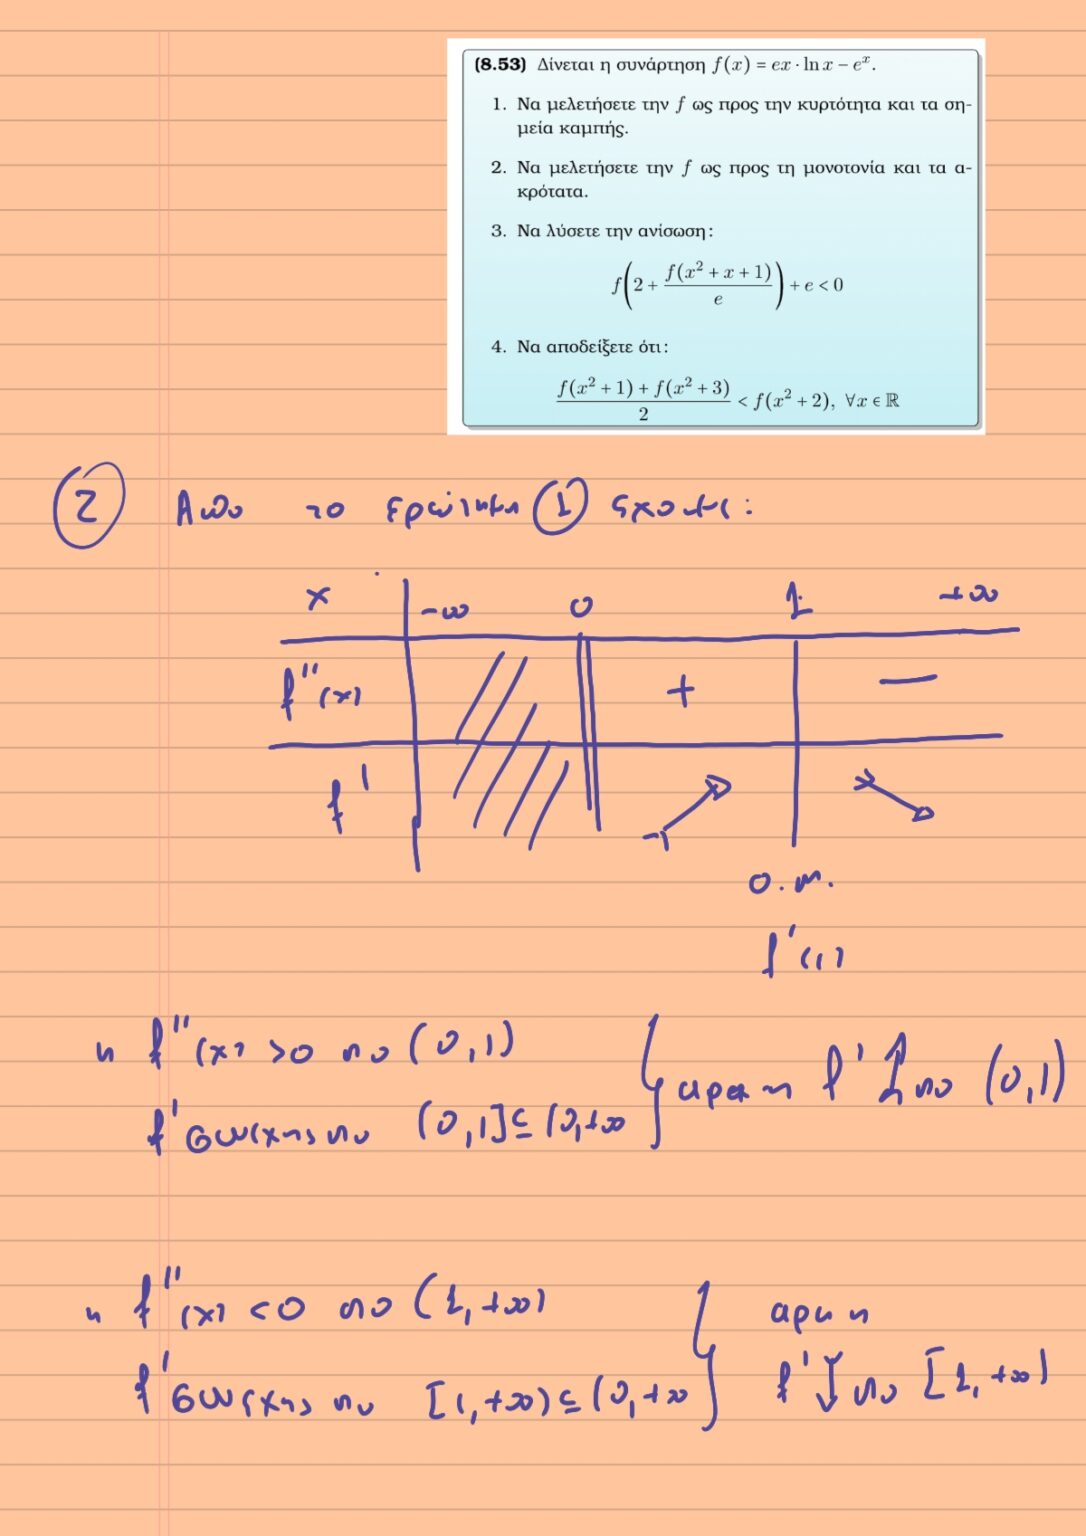 (8.53) Δίνεται η συνάρτηση f(x) = ex · ln x − e^x.
1. Να μελετήσετε την f ως προς την κυρτότητα και τα ση-
μεία καμπής.
2. Να μελετήσετε την f ως προς τη μονοτονία και τα α-
κρότατα.
3. Να λύσετε την ανίσωση:
f(2 + f(x² + x + 1)/e) + e < 0
4. Να αποδείξετε ότι:
(f(x² + 1) + f(x² + 3))/2 < f(x² + 2), ∀x ∈ ℝ
② Απο το ερώτημα ① έχουμε:
x -∞ 0 1 +∞
f''(x) + −
f' ↗ ↘
ο.μ.
f'(1)
η f''(x) >0 στο (0,1)
f' συνεχης στο (0,1] ⊆ (0,+∞ } αρα η f' ↑ στο (0,1)
η f''(x) <0 στο (1,+∞) αρα η
f' συνεχης στο [1,+∞) ⊆ (0,+∞ } f' ↓ στο [1,+∞)